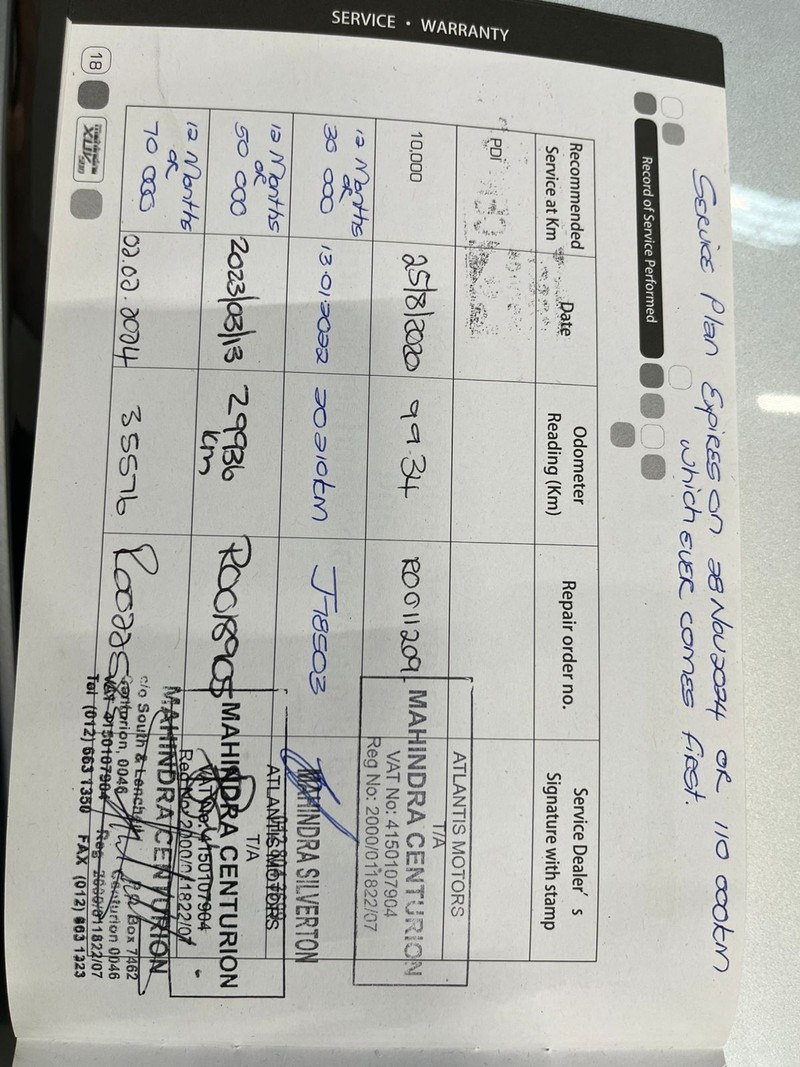 SERVICE • WARRANTY
Service Plan Expires on 28 Nov 2024 or 110 000km
which ever comes first.
Record of Service Performed
Recommended Service at Km
Date
Odometer Reading (Km)
Repair order no.
Service Dealer' s Signature with stamp
PDI
10,000
25/8/2020
9934
R0011209
ATLANTIS MOTORS
T/A
MAHINDRA CENTURION
VAT No: 4150107904
Reg No: 2000/011822/07
12 Months
or
30 000
13.01.2022
20210km
J-18503
MAHINDRA SILVERTON
12 Months
or
50 000
2023/03/13
29936
km
R0018905
ATLANTIS MOTORS
T/A
MAHINDRA CENTURION
VAT No: 4150107904
Reg No: 2000/011822/07
12 Months
or
70 000
02.02.2024
35576
MAHINDRA CENTURION
c/o South &
Box 7462
Centurion, 0046
Centurion 0046
VAT 4150107904 Reg 2000/011822/07
Tel (012) 663 1350 FAX (012) 663 1323
18
mahindra
XUV